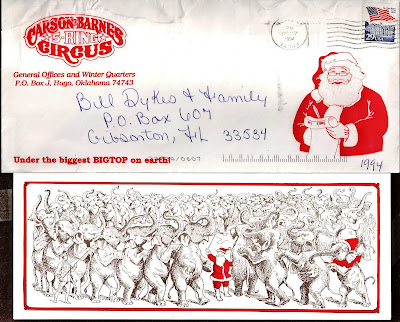 CARSON & BARNES
5-RING
CIRCUS
General Offices and Winter Quarters
P.O. Box J, Hugo, Oklahoma 74743
PM
1994
29
Bill Dykes & Family
P.O. Box 607
Gibsonton, FL 33534
Under the biggest BIGTOP on earth!
0607
1994